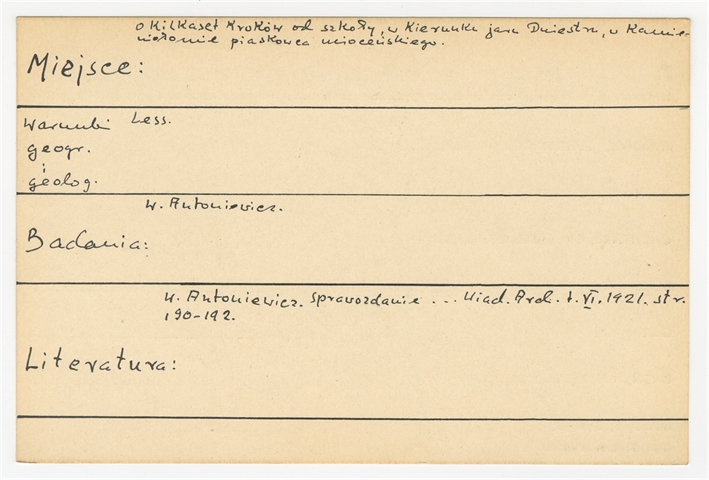 o kilkaset kroków od szkoły, w kierunku jaru Dniestru, w kamie-
niołomie piaskowca mioceńskiego.
Miejsce:
Warunki Less.
geogr.
i
geolog.
W. Antoniewicz.
Badania:
W. Antoniewicz. Sprawozdanie ... Wiad. Arch. t. VI. 1921. str.
190-192.
Literatura: